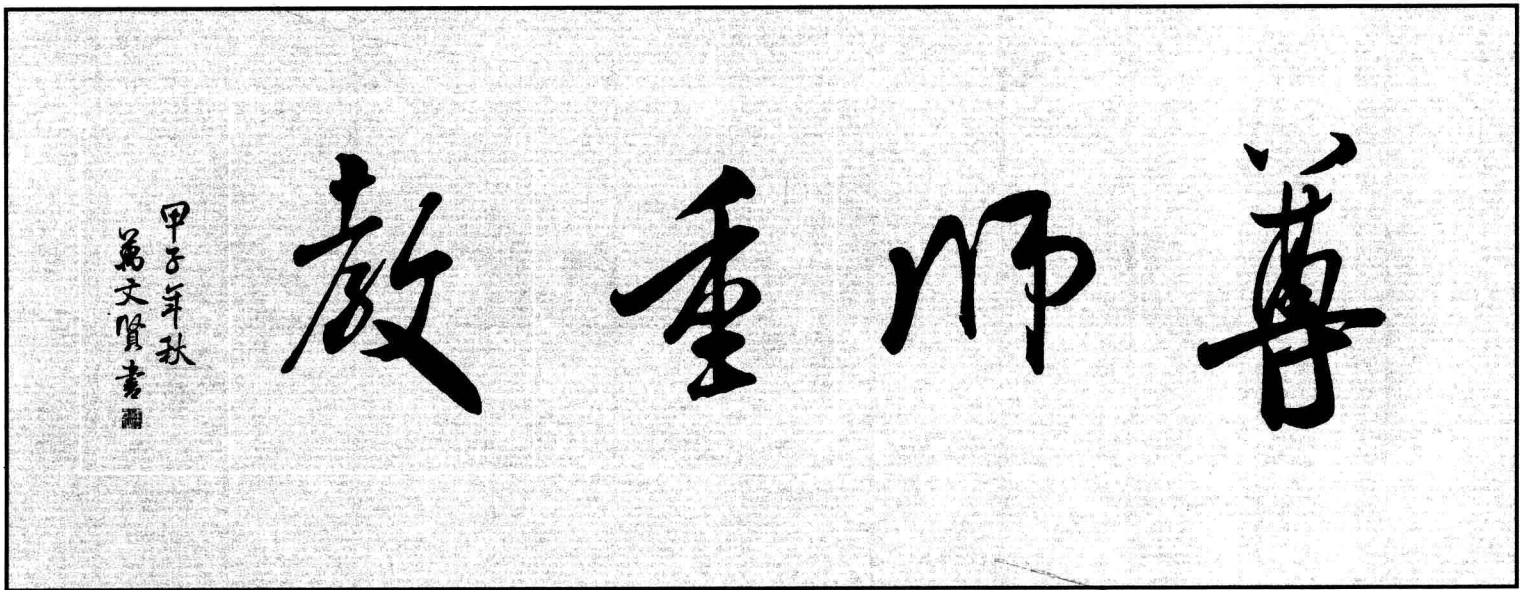 尊师重教
甲子年秋
萬文賢書